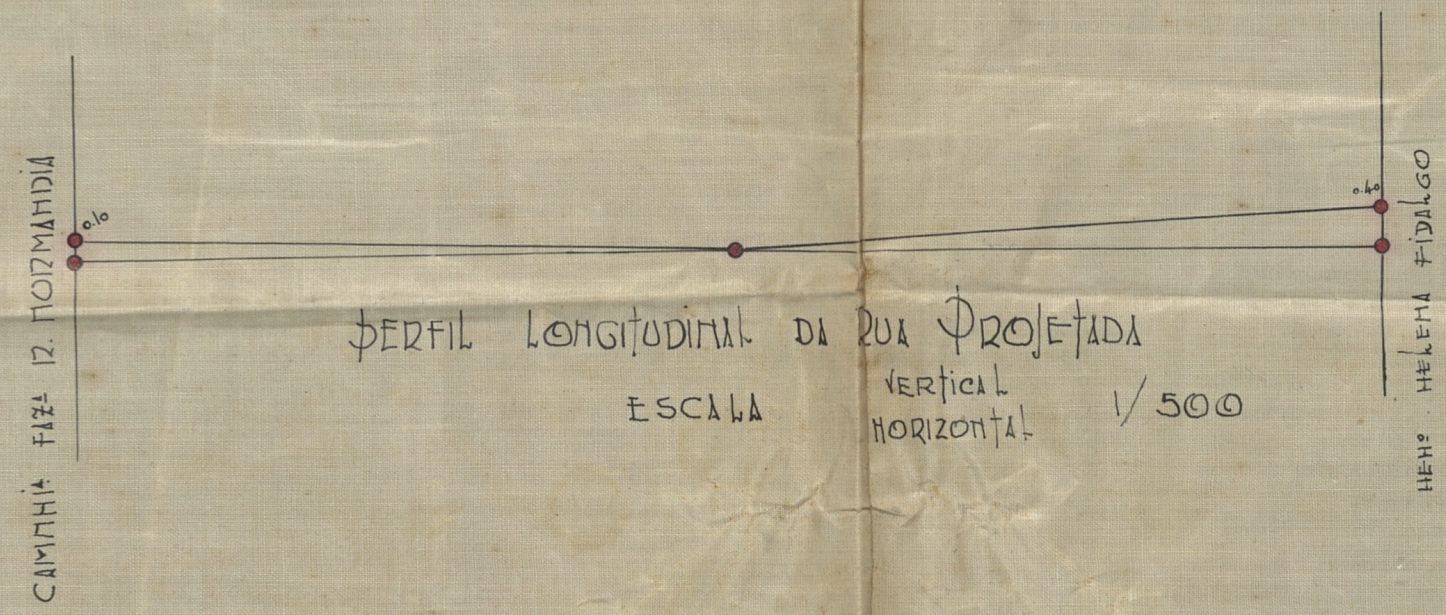 FAZª R. NORMANDIA
0.10
0.40
HELENA FIDALGO
PERFIL LONGITUDINAL DA RUA PROJETADA
ESCALA VERTICAL HORIZONTAL 1/500